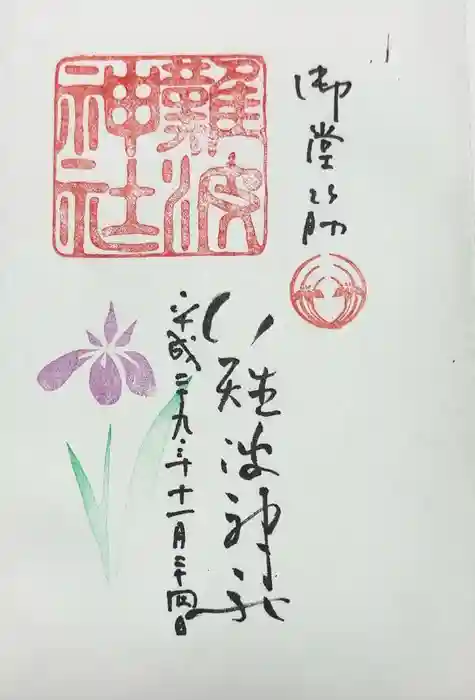 御堂筋
難波神社
難波神社
平成二十九年十一月二十四日